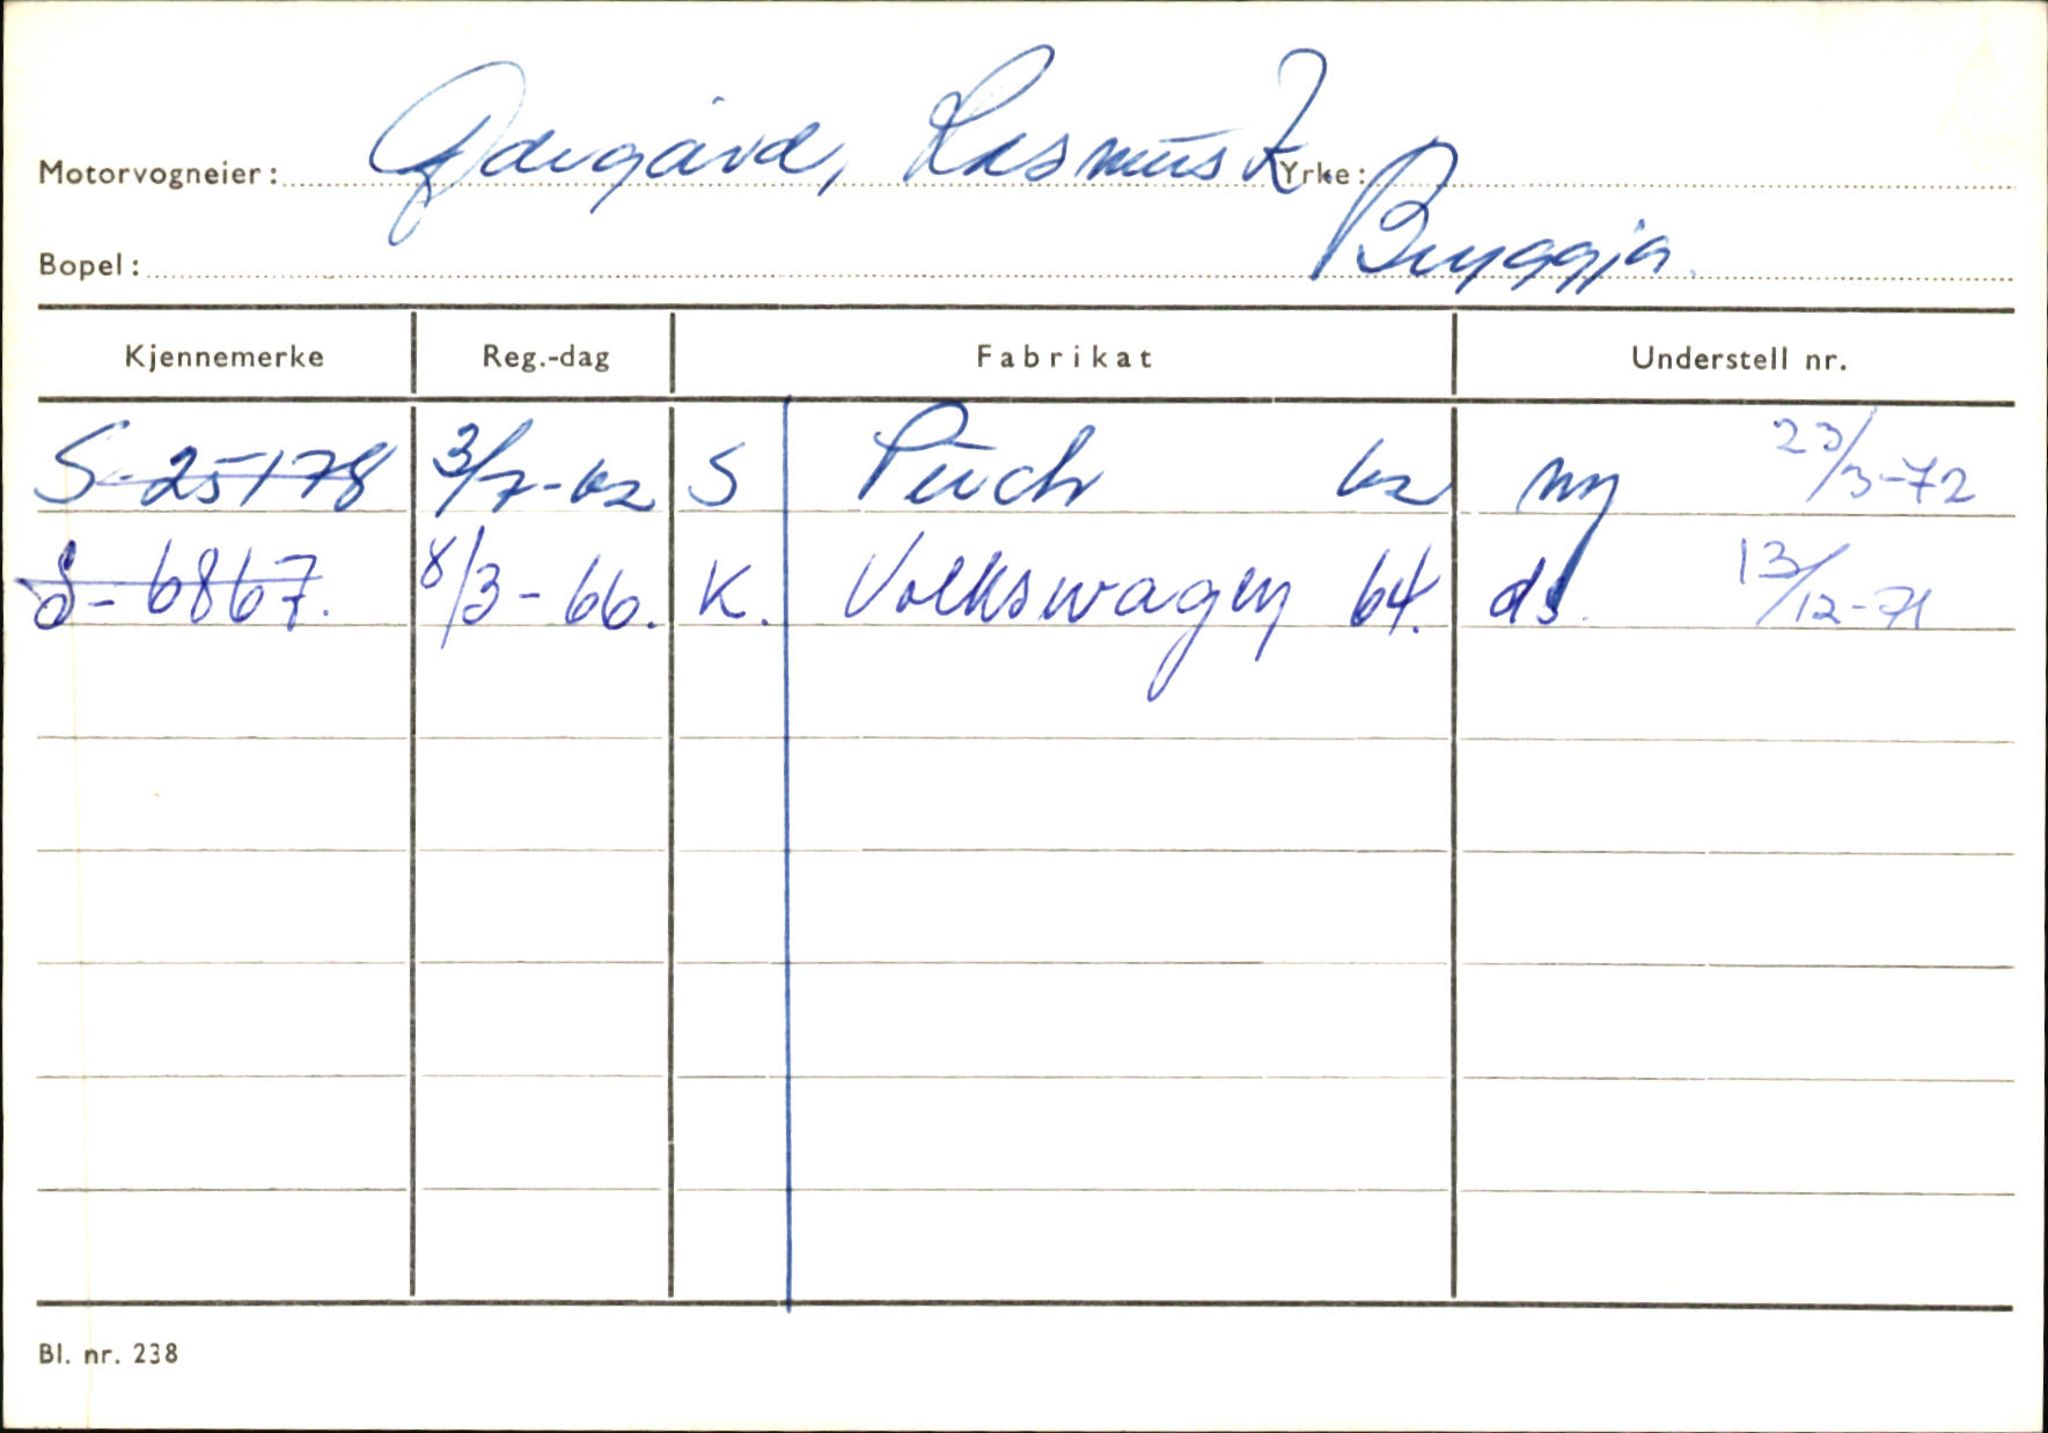 Motorvogneier: Ødegård, Rasmus Z Yrke:
Bopel: Bryggja.
Kjennemerke Reg.-dag Fabrikat Understell nr.
S-25178 3/7-62 S Püch 62 ny 23/3-72
S-6867. 8/3-66. K. Volkswagen 64. ds. 13/12-71
Bl. nr. 238